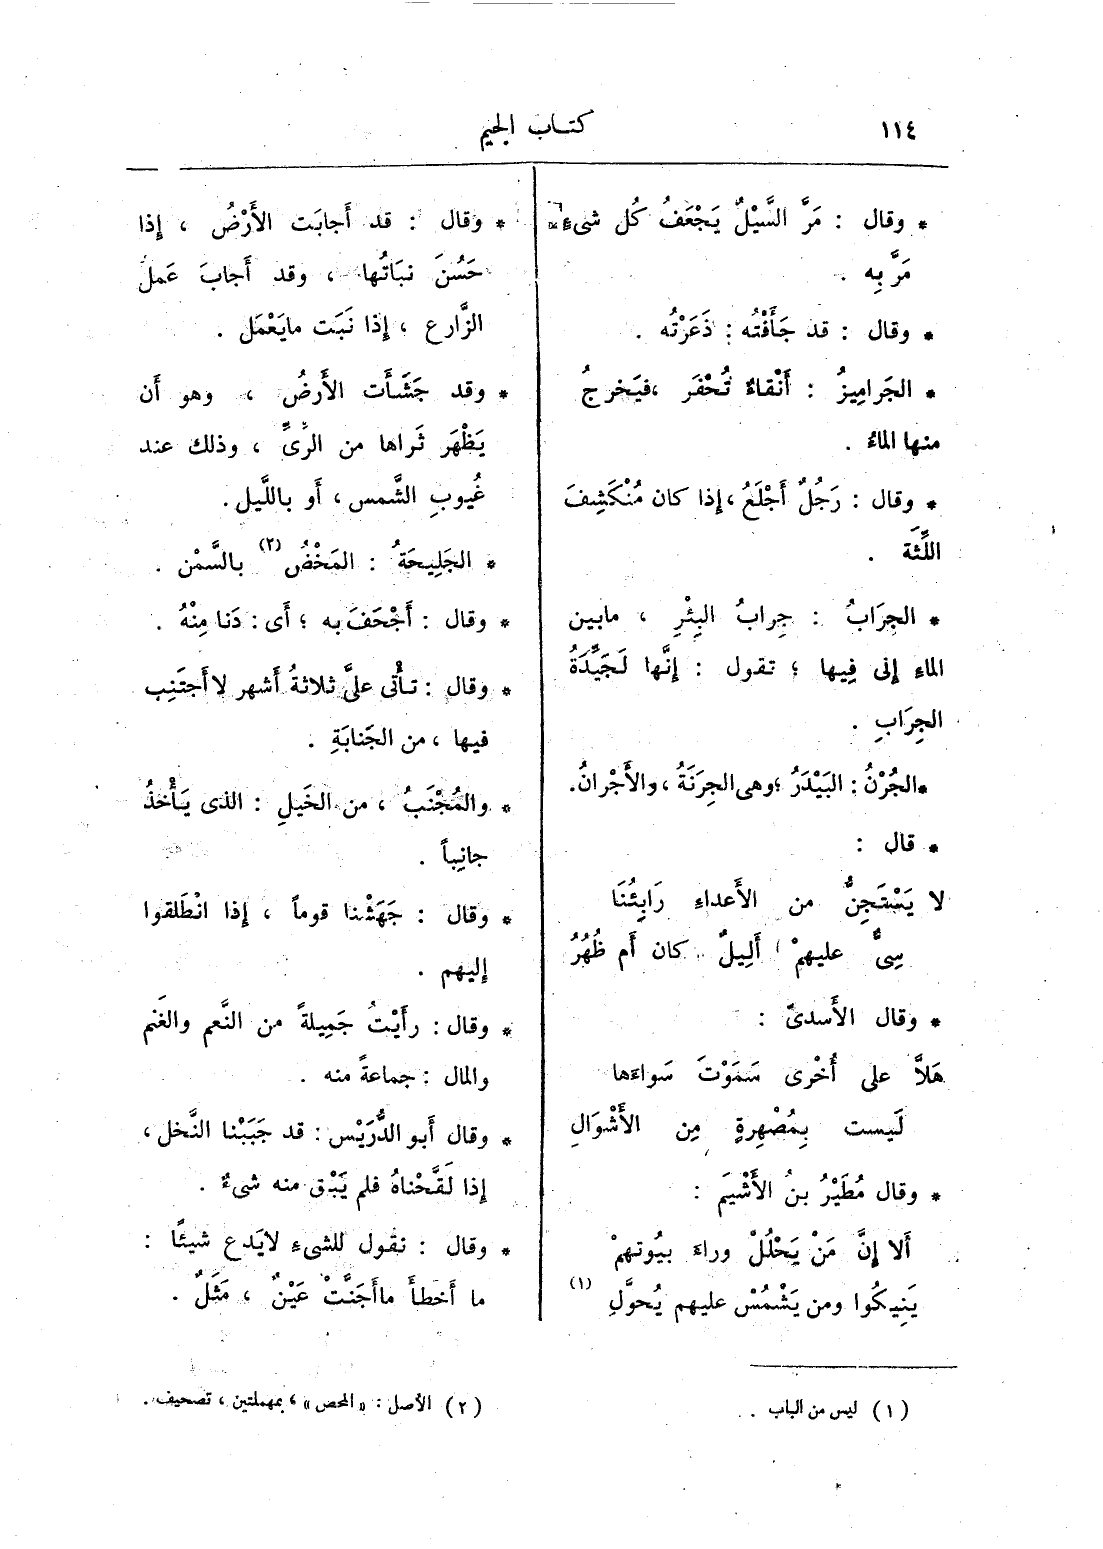 ١١٤
كتاب الجيم
* وقال : مَرَّ السَّيْلُ يَجْعَفُ كُل شىءٍ
مَرَّ بِه .
* وقال : قد جَأَفْتُه : ذَعَرْتُه .
* الجَرامِيزُ : أَنْقاءٌ تُحْفَر ، فيَخرجُ
منها الماءُ .
* وقال : رَجُلٌ أَجْلَعُ ، إِذا كان مُنْكَشِفَ
اللِّثَة .
* الجِرَابُ : جِرابُ البِئْرِ ، مابين
الماءِ إِلى فِيها ؛ تقول : إِنَّها لَجَيِّدَةُ
الجِرَابِ .
* الجُرْنُ : البَيْدَرُ ؛ وهى الجِرَنَةُ ، والأَجْرانُ .
* قال :
لا يَسْتَجِنُّ من الأَعداءِ رَابِئُنَا
سِىٌّ عليهمْ أَلِيلٌ كان أَم ظُهُرُ
* وقال الأَسدىّ :
هَلاَّ على أُخْرى سَمَوْتَ سَواءَها
لَيست بِمُصْهِرةٍ مِن الأَشْوَالِ
* وقال مُطَيْرُ بنُ الأَشْيَم :
أَلا إِنَّ مَنْ يَحْلُلْ وراءَ بيُوتهمْ
يَنِيكُوا ومن يَشْمُسْ عليهم يُحوَّلِ (١)
(١) ليس من الباب .
* وقال : قد أَجابَت الأَرْضُ ، إِذا
حَسُنَ نبَاتُها ، وقد أَجابَ عَملُ
الزَّارع ، إِذا نَبَت مايَعْمَل .
* وقد جَشَأَت الأَرضُ ، وهو أَن
يَظْهَر ثَراها من الرِّىِّ ، وذلك عند
غُيوبِ الشَّمس ، أَو باللَّيل .
* الجَلِيحَةُ : المَخْضُ (٢) بالسَّمْن .
* وقال : أَجْحَفَ به ؛ أَى : دَنا مِنْهُ .
* وقال : تأْتى علىَّ ثلاثةُ أَشهر لا أَجتَنِب
فيها ، من الجَنابَةِ .
* والمُجْنَبُ ، من الخَيلِ : الذى يَأْخذُ
جانِباً .
* وقال : جَهَشْنا قوماً ، إِذا انْطَلقوا
إِليهم .
* وقال : رأَيْتُ جَمِيلةً من النَّعم والغَنم
والمال : جماعةً منه .
* وقال أَبو الدُّرَيْس : قد جَبَبْنا النَّخل ،
إِذا لَقَّحْناهُ فلم يَبْق منه شىءٌ .
* وقال : نقول للشىءِ لايَدع شيئًا :
ما أَخطأَ ماأَجَنَّتْ عَيْنٌ ، مَثَلٌ .
(٢) الأصل : « المحص » ، بمهملتين ، تصحيف .